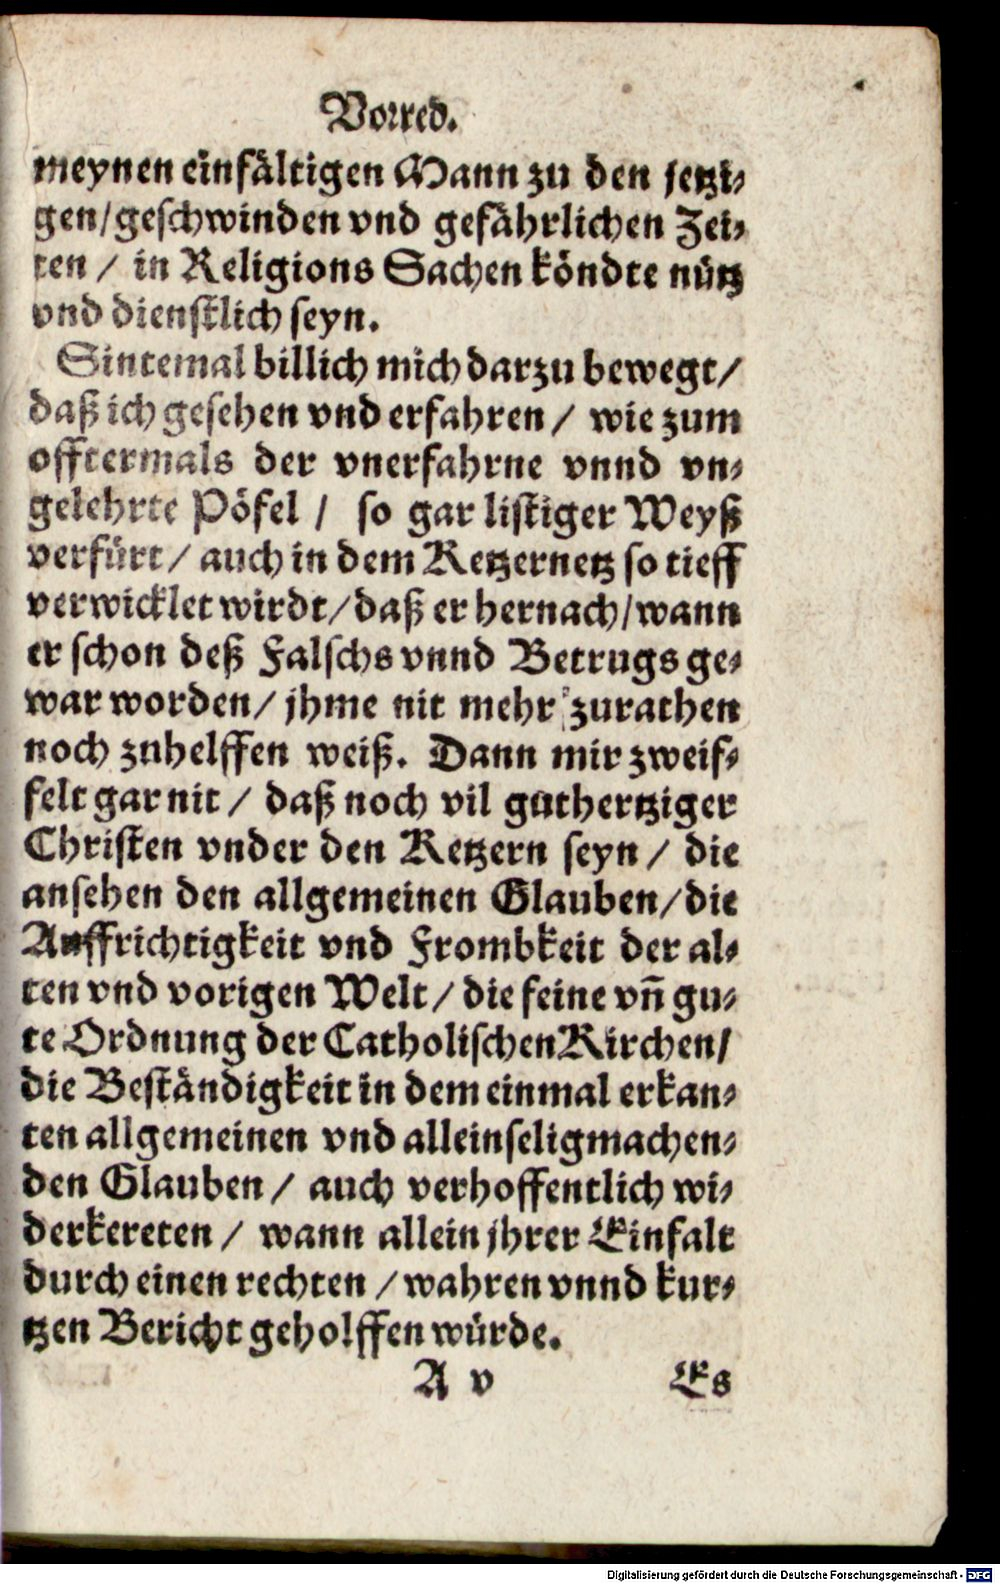 Vorred.
meynen einfältigen Mann zu den jetzi⸗
gen/geschwinden vnd gefährlichen Zei⸗
ten / in Religions Sachen köndte nütz
vnd dienstlich seyn.
Sintemal billich mich darzu bewegt/
daß ich gesehen vnd erfahren / wie zum
offtermals der vnerfahrne vnnd vn⸗
gelehrte Pöfel / so gar listiger Weyß
verfürt / auch in dem Ketzernetz so tieff
verwicklet wirdt/daß er hernach/wann
er schon deß Falschs vnnd Betrugs ge⸗
war worden/ jhme nit mehr zurathen
noch zuhelffen weiß. Dann mir zweif⸗
felt gar nit / daß noch vil guthertziger
Christen vnder den Ketzern seyn / die
ansehen den allgemeinen Glauben/die
Auffrichtigkeit vnd Frombkeit der al⸗
ten vnd vorigen Welt / die feine vñ gu⸗
te Ordnung der Catholischen Kirchen/
die Beständigkeit in dem einmal erkan⸗
ten allgemeinen vnd alleinseligmachen⸗
den Glauben / auch verhoffentlich wi⸗
derkereten / wann allein jhrer Einfalt
durch einen rechten / wahren vnnd kur⸗
tzen Bericht geholffen würde.
A v Es
Digitalisierung gefördert durch die Deutsche Forschungsgemeinschaft - DFG